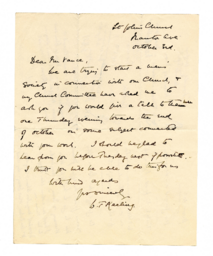 St John's Church
October 3rd.
Dear Mr Vance.
We are trying to start a men's
Society in connection with our Church, &
my Church Committee have asked me to
ask you if you would give a talk to them
one Thursday evening towards the end
of October on some subject connected
with your work. I should be glad to
hear from you before Tuesday next if possible.
I trust you will be able to do this for us
With kind regards
Yrs sincerely